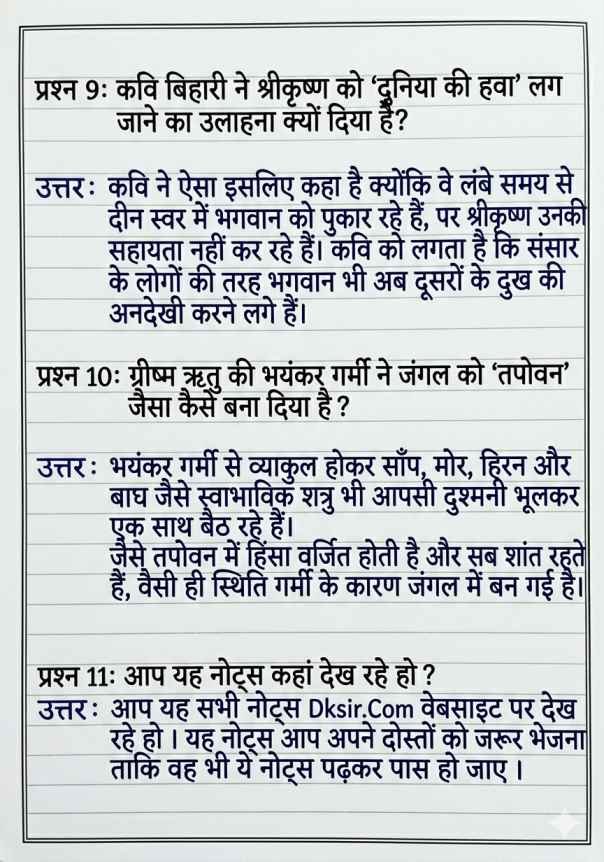 प्रश्न 9: कवि बिहारी ने श्रीकृष्ण को ‘दुनिया की हवा’ लग
जाने का उलाहना क्यों दिया है?
उत्तर: कवि ने ऐसा इसलिए कहा है क्योंकि वे लंबे समय से
दीन स्वर में भगवान को पुकार रहे हैं, पर श्रीकृष्ण उनकी
सहायता नहीं कर रहे हैं। कवि को लगता है कि संसार
के लोगों की तरह भगवान भी अब दूसरों के दुख की
अनदेखी करने लगे हैं।
प्रश्न 10: ग्रीष्म ऋतु की भयंकर गर्मी ने जंगल को ‘तपोवन’
जैसा कैसे बना दिया है ?
उत्तर: भयंकर गर्मी से व्याकुल होकर साँप, मोर, हिरन और
बाघ जैसे स्वाभाविक शत्रु भी आपसी दुश्मनी भूलकर
एक साथ बैठ रहे हैं।
जैसे तपोवन में हिंसा वर्जित होती है और सब शांत रहते
हैं, वैसी ही स्थिति गर्मी के कारण जंगल में बन गई है।
प्रश्न 11: आप यह नोट्स कहां देख रहे हो ?
उत्तर: आप यह सभी नोट्स Dksir.Com वेबसाइट पर देख
रहे हो । यह नोट्स आप अपने दोस्तों को जरूर भेजना
ताकि वह भी ये नोट्स पढ़कर पास हो जाए ।